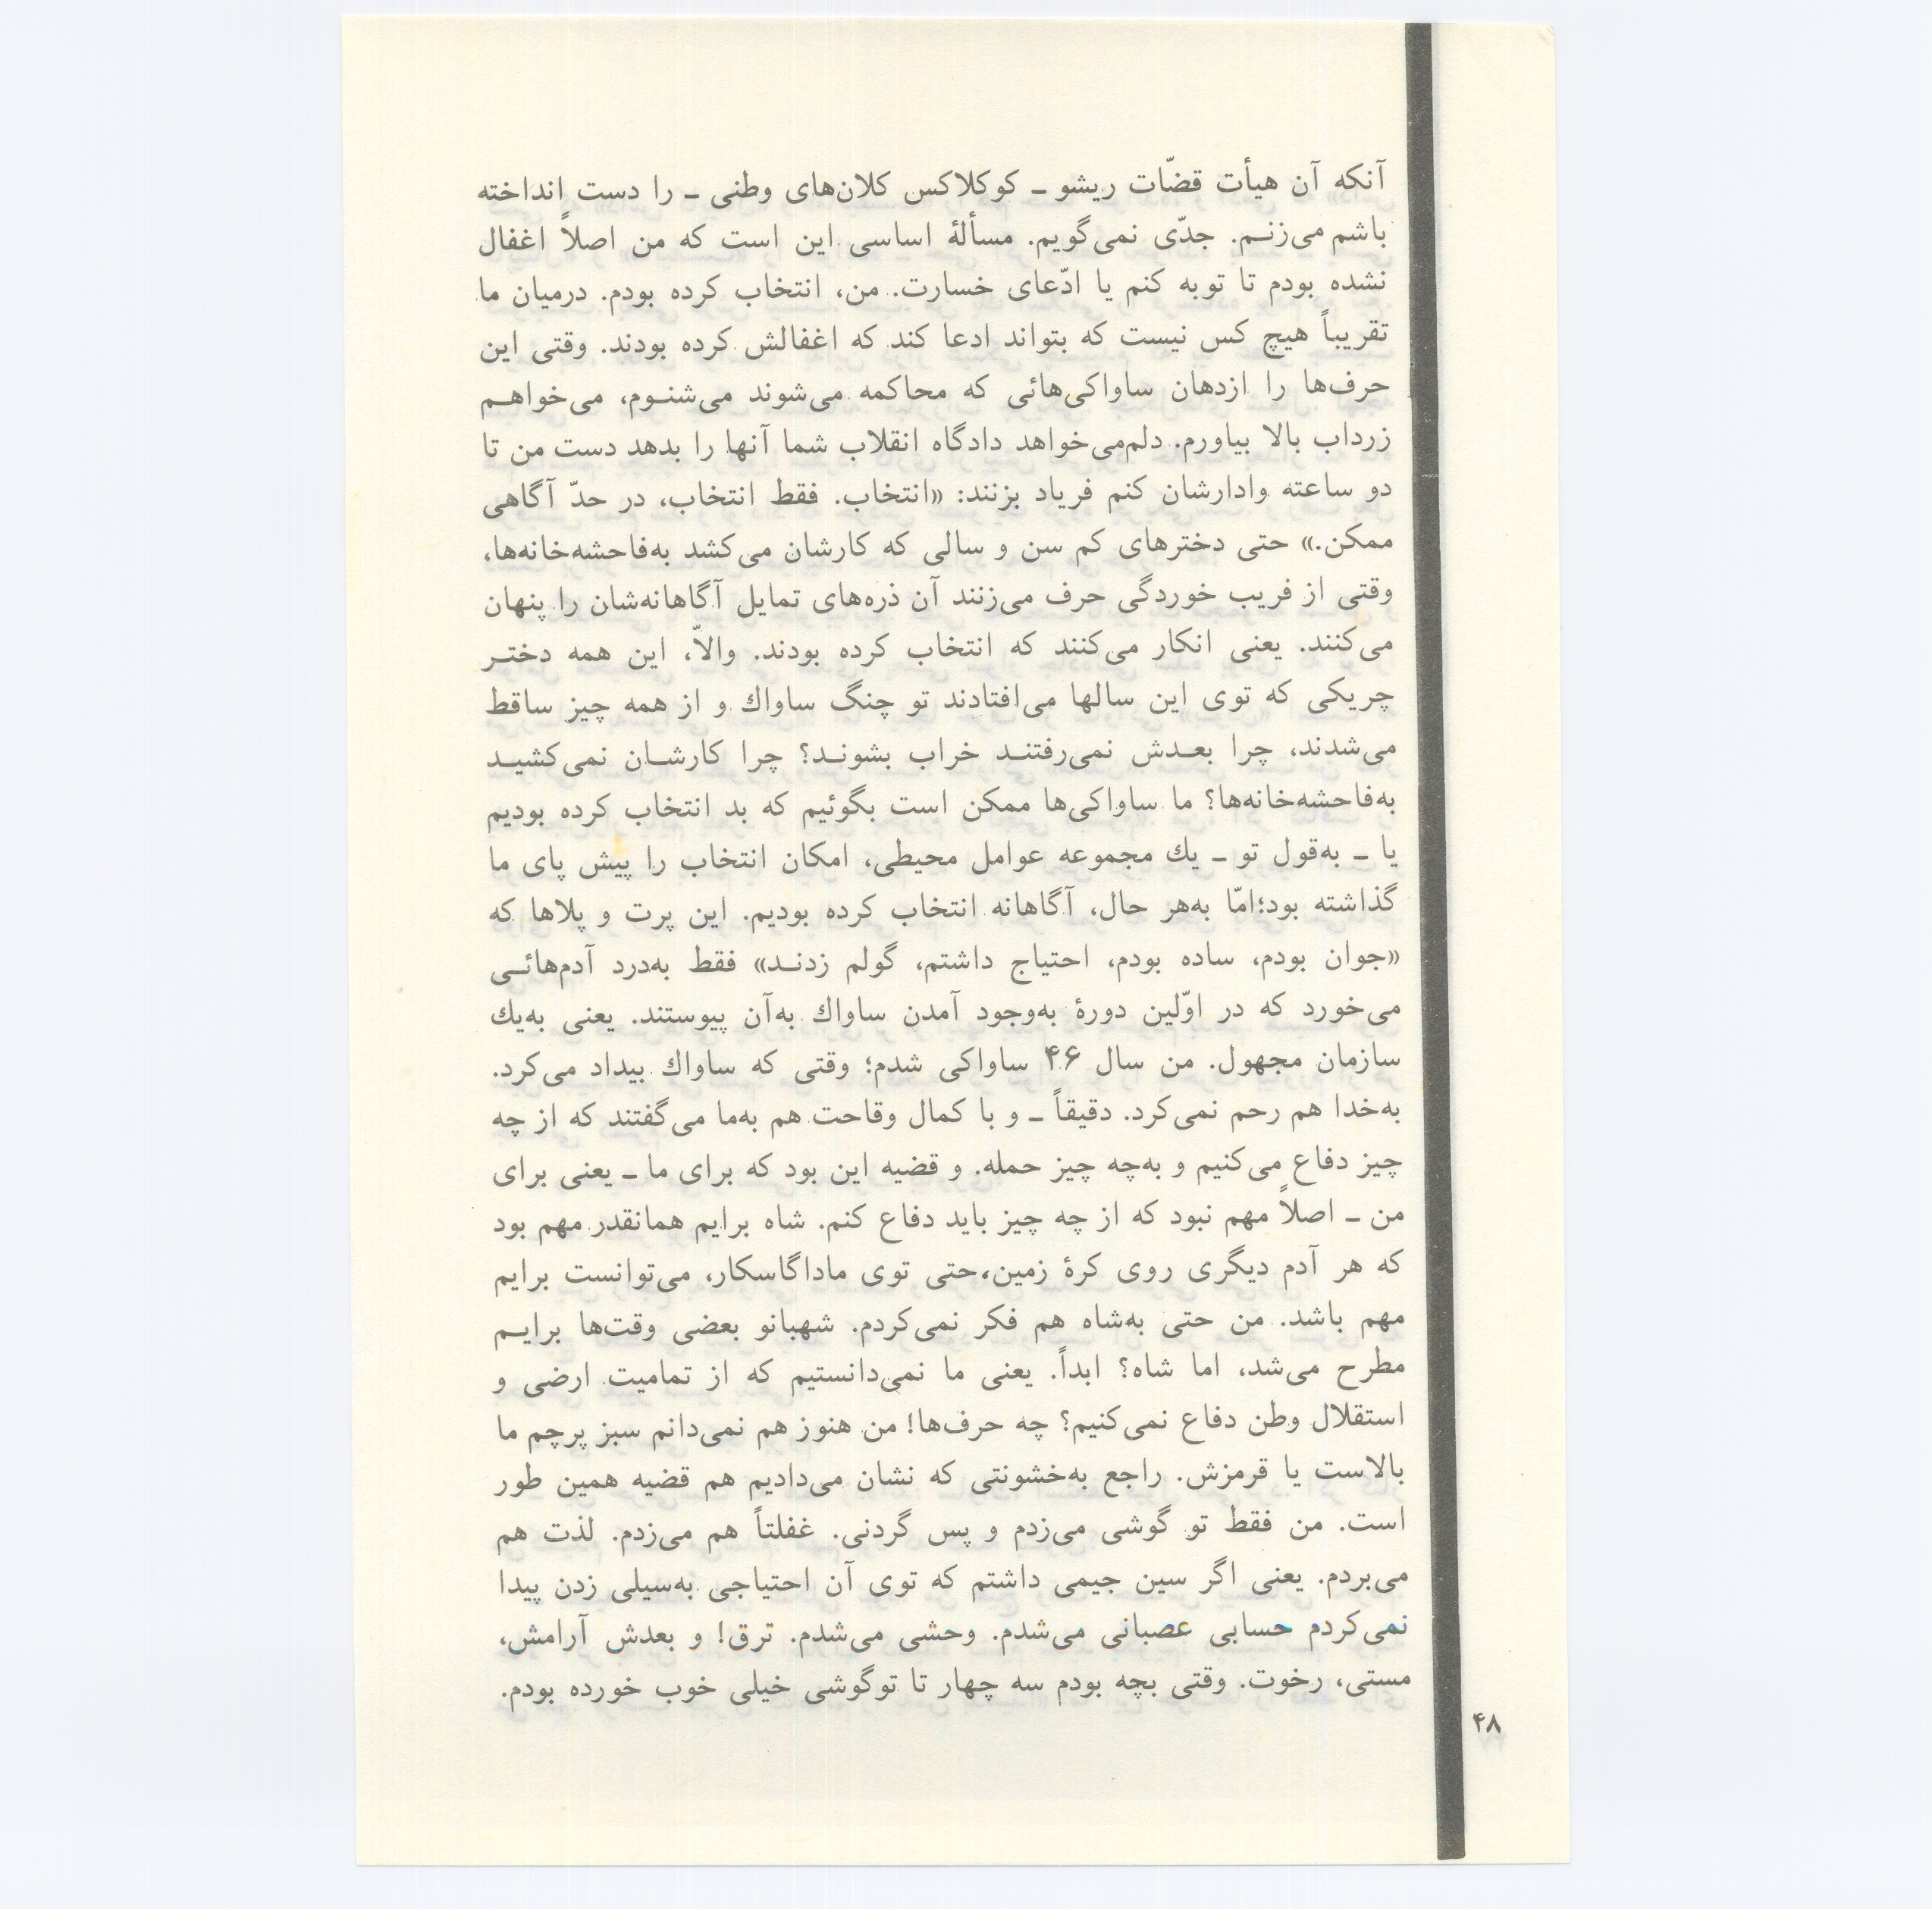 آنکه آن هیأت قضّات ریشو ـ کوکلاکس کلان‌های وطنی ـ را دست انداخته
باشم می‌زنم. جدّی نمی‌گویم. مسألهٔ اساسی این است که من اصلاً اغفال
نشده بودم تا توبه کنم یا ادّعای خسارت. من، انتخاب کرده بودم. درمیان ما
تقریباً هیچ کس نیست که بتواند ادعا کند که اغفالش کرده بودند. وقتی این
حرف‌ها را ازدهان ساواکی‌هائی که محاکمه می‌شوند می‌شنوم، می‌خواهم
زرداب بالا بیاورم. دلم‌می‌خواهد دادگاه انقلاب شما آنها را بدهد دست من تا
دو ساعته وادارشان کنم فریاد بزنند: «انتخاب. فقط انتخاب، در حدّ آگاهی
ممکن.» حتی دخترهای کم سن و سالی که کارشان می‌کشد به‌فاحشه‌خانه‌ها،
وقتی از فریب خوردگی حرف می‌زنند آن ذره‌های تمایل آگاهانه‌شان را پنهان
می‌کنند. یعنی انکار می‌کنند که انتخاب کرده بودند. والاّ، این همه دختر
چریکی که توی این سالها می‌افتادند تو چنگ ساواك و از همه چیز ساقط
می‌شدند، چرا بعدش نمی‌رفتند خراب بشوند؟ چرا کارشان نمی‌کشید
به‌فاحشه‌خانه‌ها؟ ما ساواکی‌ها ممکن است بگوئیم که بد انتخاب کرده بودیم
یا ـ به‌قول تو ـ یك مجموعه عوامل محیطی، امکان انتخاب را پیش پای ما
گذاشته بود؛امّا به‌هر حال، آگاهانه انتخاب کرده بودیم. این پرت و پلاها که
«جوان بودم، ساده بودم، احتیاج داشتم، گولم زدند» فقط به‌درد آدم‌هائی
می‌خورد که در اوّلین دورهٔ به‌وجود آمدن ساواك به‌آن پیوستند. یعنی به‌یك
سازمان مجهول. من سال ۴۶ ساواکی شدم؛ وقتی که ساواك بیداد می‌کرد.
به‌خدا هم رحم نمی‌کرد. دقیقاً ـ و با کمال وقاحت هم به‌ما می‌گفتند که از چه
چیز دفاع می‌کنیم و به‌چه چیز حمله. و قضیه این بود که برای ما ـ یعنی برای
من ـ اصلاً مهم نبود که از چه چیز باید دفاع کنم. شاه برایم همانقدر مهم بود
که هر آدم دیگری روی کرهٔ زمین،حتی توی ماداگاسکار، می‌توانست برایم
مهم باشد. من حتی به‌شاه هم فکر نمی‌کردم. شهبانو بعضی وقت‌ها برایم
مطرح می‌شد، اما شاه؟ ابداً. یعنی ما نمی‌دانستیم که از تمامیت ارضی و
استقلال وطن دفاع نمی‌کنیم؟ چه حرف‌ها! من هنوز هم نمی‌دانم سبز پرچم ما
بالاست یا قرمزش. راجع به‌خشونتی که نشان می‌دادیم هم قضیه همین طور
است. من فقط تو گوشی می‌زدم و پس گردنی. غفلتاً هم می‌زدم. لذت هم
می‌بردم. یعنی اگر سین جیمی داشتم که توی آن احتیاجی به‌سیلی زدن پیدا
نمی‌کردم حسابی عصبانی می‌شدم. وحشی می‌شدم. ترق! و بعدش آرامش،
مستی، رخوت. وقتی بچه بودم سه چهار تا توگوشی خیلی خوب خورده بودم.
۴۸